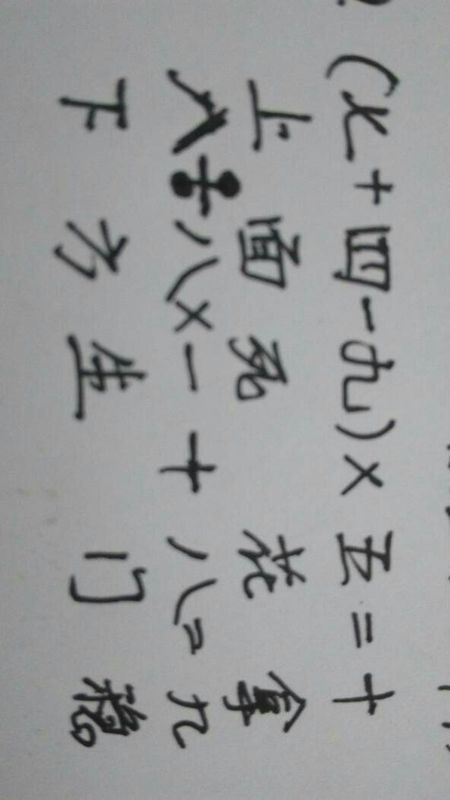 (x+四-九)×五=十
上面死花拿
八÷八×一+八=九
下方生门